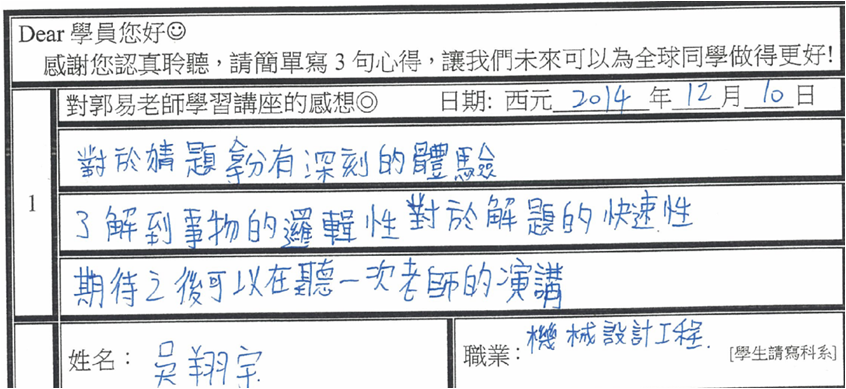 Dear 學員您好☺
感謝您認真聆聽，請簡單寫 3 句心得，讓我們未來可以為全球同學做得更好!
對郭易老師學習講座的感想◎ 日期: 西元 2014 年 12 月 10 日
1
對於猜題拿分有深刻的體驗
了解到事物的邏輯性對於解題的快速性
期待之後可以在聽一次老師的演講
姓名： 吳翔宇 職業： 機械設計工程. [學生請寫科系]